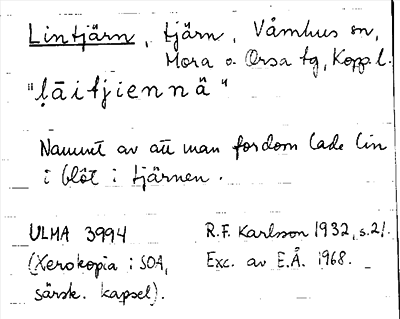 Lintjärn, tjärn, Våmhus sn,
Mora o. Orsa tg, Kopp.l.
"ḷāitjiennä"
Namnet av att man fordom lade lin
i blöt i tjärnen.
ULMA 3994
(Xerokopia i SOA,
särsk. kapsel).
R.F. Karlsson 1932, s.21.
Exc. av E.Å. 1968.